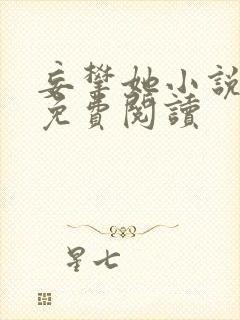 妄攀她小說
免費閱讀
星七